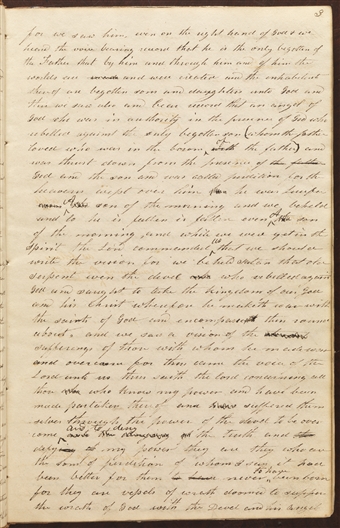 3
for we saw him even on the right hand of God & we
heard the voice bearing record that he is the only begotten of
the Father that by him and through him and of him the
worlds are made and were created and the inhabitants
thereof are begotten sons and daughters unto God and
this we saw also and bear record that an angel of
God who was in authority in the presence of God who
rebelled against the only begotten son (whom the father
loved who was in the bosom of the father) and
was thrust down from the presence of the father
God and the son and was called perdition for the
heavens wept over him he was lucifer
even a son of the morning and we beheld
and lo he is fallen is fallen even a son
of the morning and while we were yet in the
spirit the Lord commanded us that we should
write the vision for we beheld satan that old
serpent even the devel who rebelled against
God and saught to take the kingdoms of our God
and his Christ wherefore he maketh war with
the saints of God and encompaseth them round
about and we saw a vision of the
sufferings of those with whom he made war
and overcame for thus came the voice of the
Lord unto us thus saith the lord concerning all
those who know my power and have been
made partakers thereof and suffered them
selves through the power of the devel to be over
come and to deny the truth and
defy my power they are they who are
the sons of perdition of whom I say it had
been better for them never to have been born
for they are vessels of wrath doomed to suffer
the wrath of God with the Devel and his angels